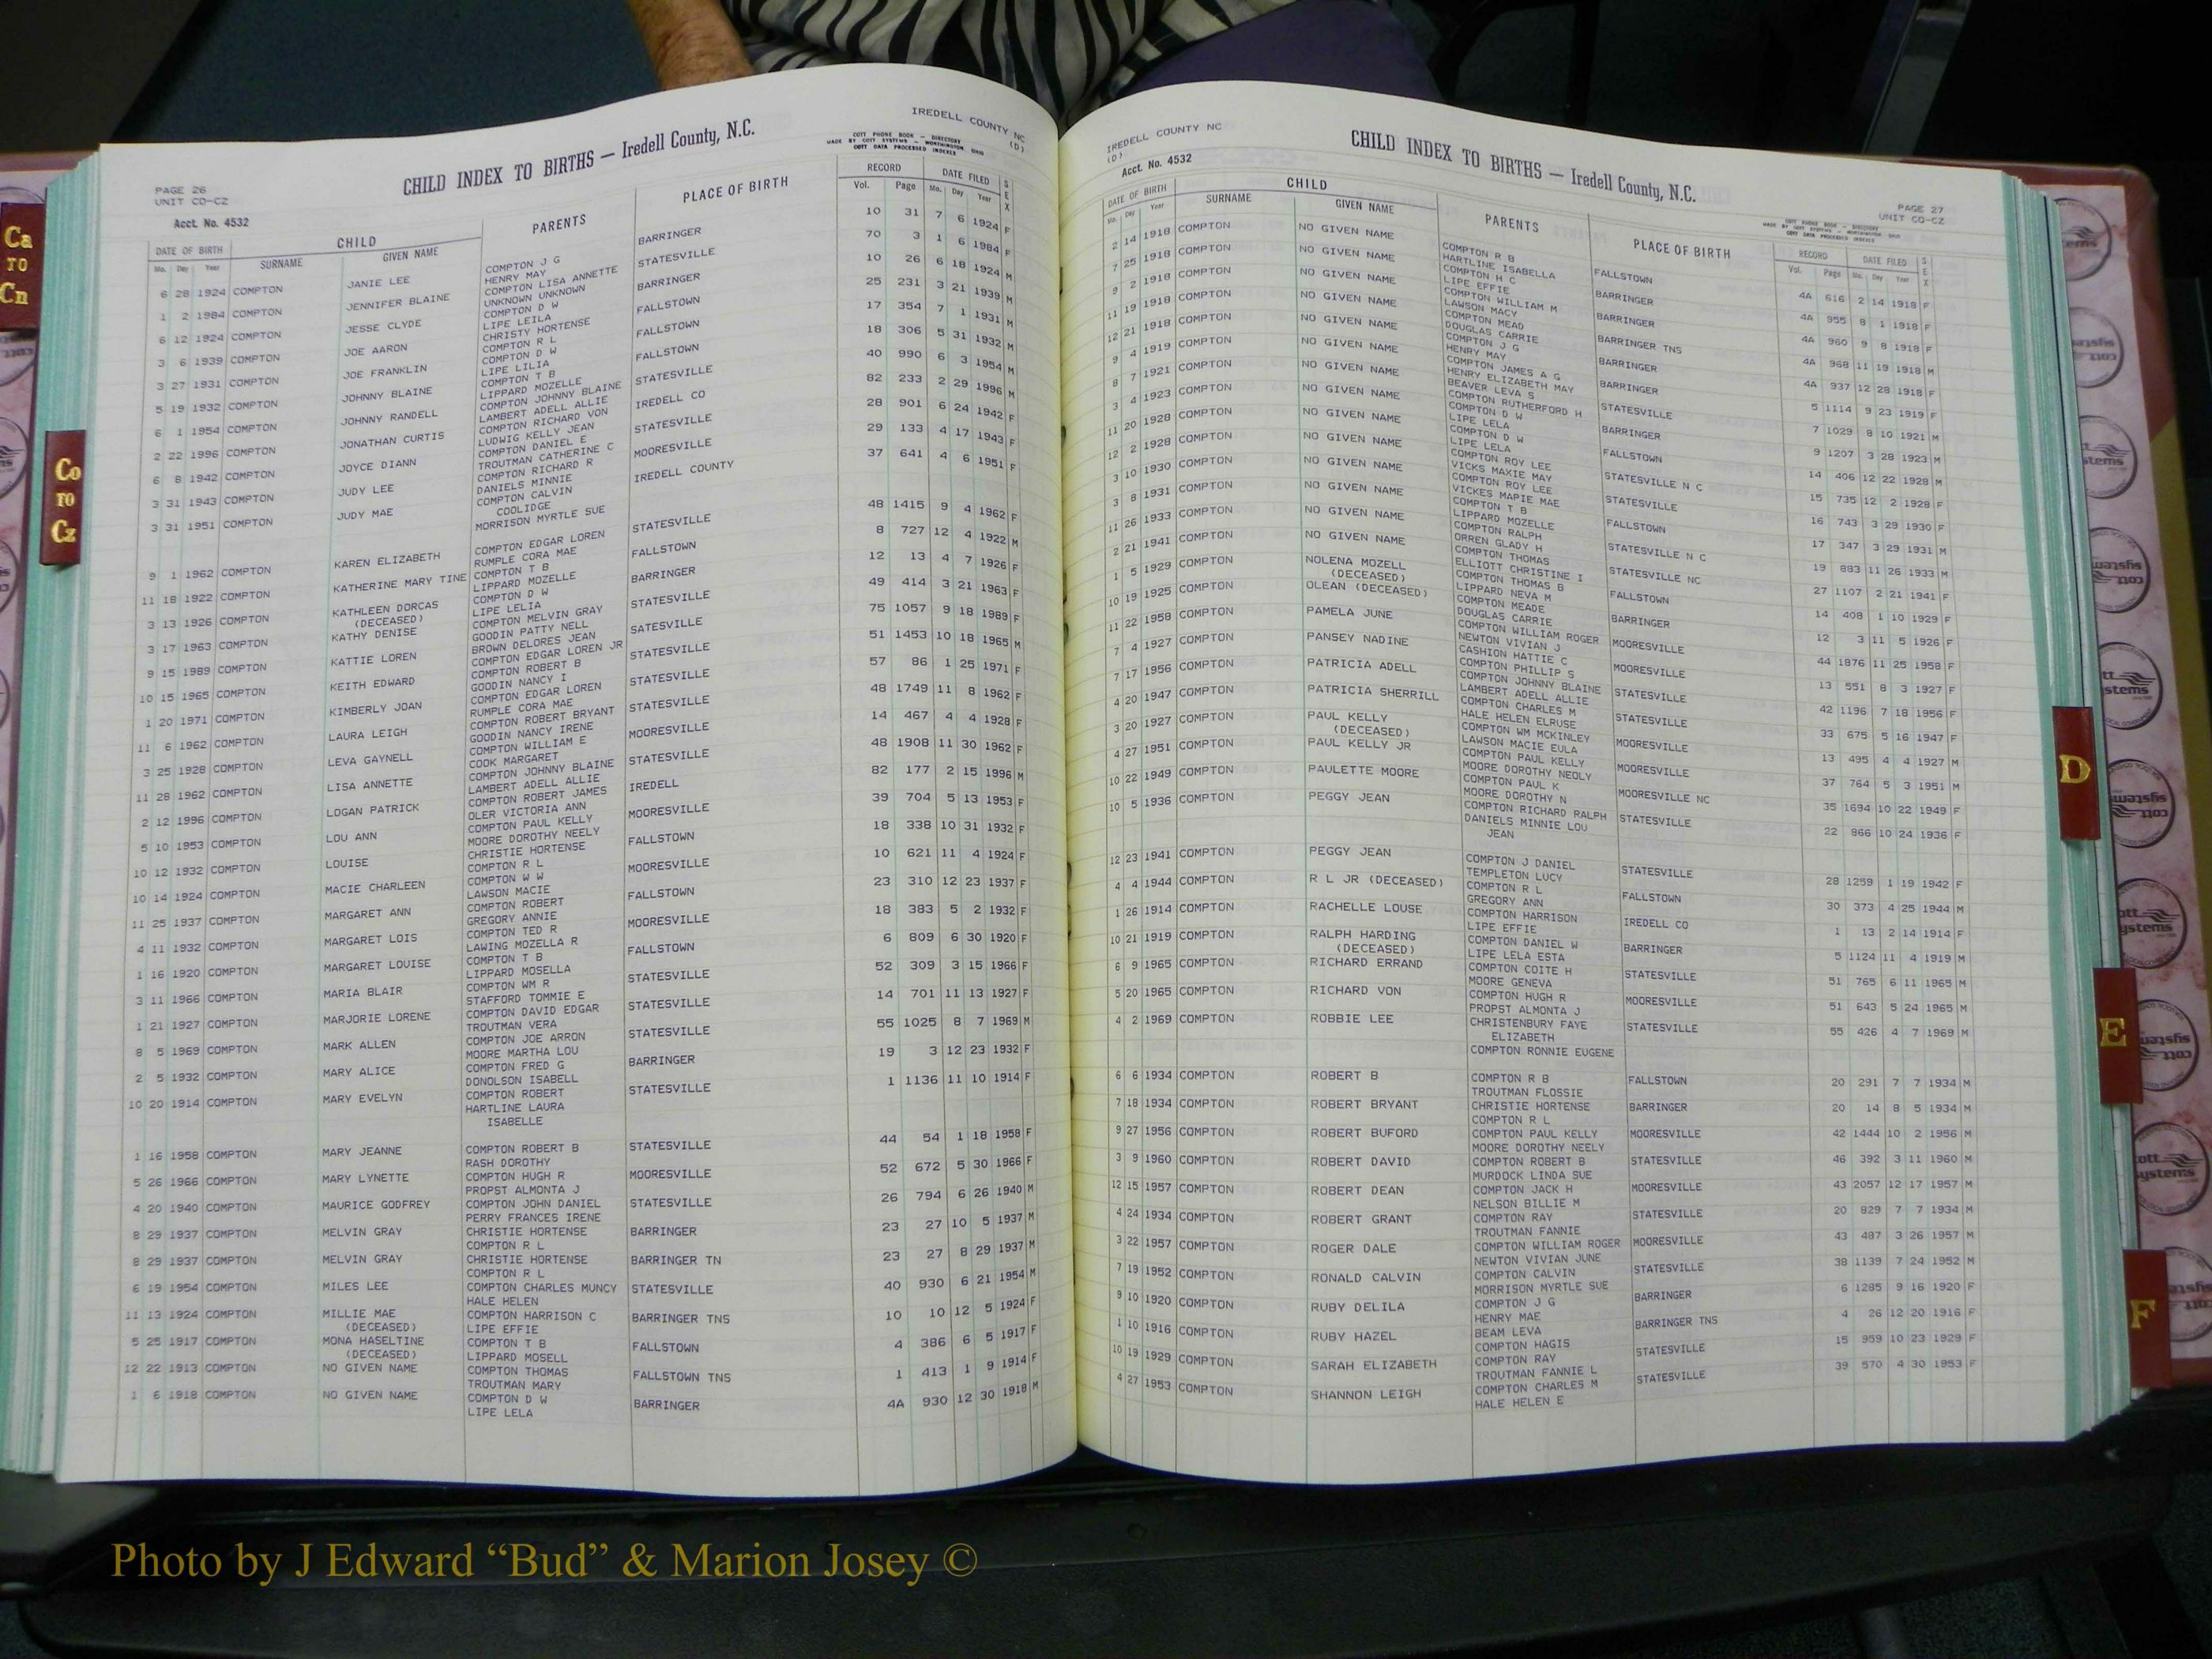 Ca
TO
Cn
Co
TO
Cz
PAGE 26
UNIT CO-CZ
Acct. No. 4532
CHILD INDEX TO BIRTHS — Iredell County, N.C.
IREDELL COUNTY NC
(D)
COTT PHONE BOOK - DIRECTORY
MADE BY COTT SYSTEMS - WORTHINGTON, OHIO
COTT DATA PROCESSED INDEXES
DATE OF BIRTH CHILD PARENTS PLACE OF BIRTH RECORD DATE FILED SEX
Mo. Day Year SURNAME GIVEN NAME Vol. Page Mo. Day Year
6 28 1924 COMPTON JANIE LEE COMPTON J G BARRINGER 10 31 7 6 1924 F
HENRY MAY
1 2 1984 COMPTON JENNIFER BLAINE COMPTON LISA ANNETTE STATESVILLE 70 3 1 6 1984 F
UNKNOWN UNKNOWN
6 12 1924 COMPTON JESSE CLYDE COMPTON D W BARRINGER 10 26 6 18 1924 M
LIPE LEILA
3 6 1939 COMPTON JOE AARON CHRISTY HORTENSE FALLSTOWN 25 231 3 21 1939 M
COMPTON R L
3 27 1931 COMPTON JOE FRANKLIN COMPTON D W FALLSTOWN 17 354 7 1 1931 M
LIPE LILIA
5 19 1932 COMPTON JOHNNY BLAINE COMPTON T B FALLSTOWN 18 306 5 31 1932 M
LIPPARD MOZELLE
6 1 1954 COMPTON JOHNNY RANDELL COMPTON JOHNNY BLAINE STATESVILLE 40 990 6 3 1954 M
LAMBERT ADELL ALLIE
2 22 1996 COMPTON JONATHAN CURTIS COMPTON RICHARD VON IREDELL CO 82 233 2 29 1996 M
LUDWIG KELLY JEAN
6 8 1942 COMPTON JOYCE DIANN COMPTON DANIEL E STATESVILLE 28 901 6 24 1942 F
TROUTMAN CATHERINE C
3 31 1943 COMPTON JUDY LEE COMPTON RICHARD R MOORESVILLE 29 133 4 17 1943 F
DANIELS MINNIE
3 31 1951 COMPTON JUDY MAE COMPTON CALVIN IREDELL COUNTY 37 641 4 6 1951 F
COOLIDGE
MORRISON MYRTLE SUE
9 1 1962 COMPTON KAREN ELIZABETH COMPTON EDGAR LOREN STATESVILLE 48 1415 9 4 1962 F
RUMPLE CORA MAE
11 18 1922 COMPTON KATHERINE MARY TINE COMPTON T B FALLSTOWN 8 727 12 4 1922 M
LIPPARD MOZELLE
3 13 1926 COMPTON KATHLEEN DORCAS COMPTON D W BARRINGER 12 13 4 7 1926 F
(DECEASED) LIPE LELIA
3 17 1963 COMPTON KATHY DENISE COMPTON MELVIN GRAY STATESVILLE 49 414 3 21 1963 F
GOODIN PATTY NELL
9 15 1989 COMPTON KATTIE LOREN BROWN DELORES JEAN SATESVILLE 75 1057 9 18 1989 F
COMPTON EDGAR LOREN JR
10 15 1965 COMPTON KEITH EDWARD COMPTON ROBERT B STATESVILLE 51 1453 10 18 1965 M
GOODIN NANCY I
1 20 1971 COMPTON KIMBERLY JOAN COMPTON EDGAR LOREN STATESVILLE 57 86 1 25 1971 F
RUMPLE CORA MAE
11 6 1962 COMPTON LAURA LEIGH COMPTON ROBERT BRYANT STATESVILLE 48 1749 11 8 1962 F
GOODIN NANCY IRENE
3 25 1928 COMPTON LEVA GAYNELL COMPTON WILLIAM E MOORESVILLE 14 467 4 4 1928 F
COOK MARGARET
11 28 1962 COMPTON LISA ANNETTE COMPTON JOHNNY BLAINE STATESVILLE 48 1908 11 30 1962 F
LAMBERT ADELL ALLIE
2 12 1996 COMPTON LOGAN PATRICK COMPTON ROBERT JAMES IREDELL 82 177 2 15 1996 M
OLER VICTORIA ANN
5 10 1953 COMPTON LOU ANN COMPTON PAUL KELLY MOORESVILLE 39 704 5 13 1953 F
MOORE DOROTHY NEELY
10 12 1932 COMPTON LOUISE CHRISTIE HORTENSE FALLSTOWN 18 338 10 31 1932 F
COMPTON R L
10 14 1924 COMPTON MACIE CHARLEEN COMPTON W W MOORESVILLE 10 621 11 4 1924 F
LAWSON MACIE
11 25 1937 COMPTON MARGARET ANN COMPTON ROBERT FALLSTOWN 23 310 12 23 1937 F
GREGORY ANNIE
4 11 1932 COMPTON MARGARET LOIS COMPTON TED R MOORESVILLE 18 383 5 2 1932 F
LAWING MOZELLA R
1 16 1920 COMPTON MARGARET LOUISE COMPTON T B FALLSTOWN 6 809 6 30 1920 F
LIPPARD MOSELLA
3 11 1966 COMPTON MARIA BLAIR COMPTON WM R STATESVILLE 52 309 3 15 1966 F
STAFFORD TOMMIE E
1 21 1927 COMPTON MARJORIE LORENE COMPTON DAVID EDGAR STATESVILLE 14 701 11 13 1927 F
TROUTMAN VERA
8 5 1969 COMPTON MARK ALLEN COMPTON JOE ARRON STATESVILLE 55 1025 8 7 1969 M
MOORE MARTHA LOU
2 5 1932 COMPTON MARY ALICE COMPTON FRED G BARRINGER 19 3 12 23 1932 F
DONOLSON ISABELL
10 20 1914 COMPTON MARY EVELYN COMPTON ROBERT STATESVILLE 1 1136 11 10 1914 F
HARTLINE LAURA
ISABELLE
1 16 1958 COMPTON MARY JEANNE COMPTON ROBERT B STATESVILLE 44 54 1 18 1958 F
RASH DOROTHY
5 26 1966 COMPTON MARY LYNETTE COMPTON HUGH R MOORESVILLE 52 672 5 30 1966 F
PROPST ALMONTA J
4 20 1940 COMPTON MAURICE GODFREY COMPTON JOHN DANIEL STATESVILLE 26 794 6 26 1940 M
PERRY FRANCES IRENE
8 29 1937 COMPTON MELVIN GRAY CHRISTIE HORTENSE BARRINGER 23 27 10 5 1937 M
COMPTON R L
8 29 1937 COMPTON MELVIN GRAY CHRISTIE HORTENSE BARRINGER TN 23 27 8 29 1937 M
COMPTON R L
6 19 1954 COMPTON MILES LEE COMPTON CHARLES MUNCY STATESVILLE 40 930 6 21 1954 M
HALE HELEN
11 13 1924 COMPTON MILLIE MAE COMPTON HARRISON C BARRINGER TNS 10 10 12 5 1924 F
(DECEASED) LIPE EFFIE
5 25 1917 COMPTON MONA HASELTINE COMPTON T B FALLSTOWN 4 386 6 5 1917 F
(DECEASED) LIPPARD MOSELL
12 22 1913 COMPTON NO GIVEN NAME COMPTON THOMAS FALLSTOWN TNS 1 413 1 9 1914 F
TROUTMAN MARY
1 6 1918 COMPTON NO GIVEN NAME COMPTON D W BARRINGER 4A 930 12 30 1918 M
LIPE LELA
IREDELL COUNTY NC
(D)
Acct. No. 4532
CHILD INDEX TO BIRTHS — Iredell County, N.C.
PAGE 27
UNIT CO-CZ
COTT PHONE BOOK - DIRECTORY
MADE BY COTT SYSTEMS - WORTHINGTON, OHIO
COTT DATA PROCESSED INDEXES
DATE OF BIRTH CHILD PARENTS PLACE OF BIRTH RECORD DATE FILED SEX
Mo. Day Year SURNAME GIVEN NAME Vol. Page Mo. Day Year
2 14 1918 COMPTON NO GIVEN NAME COMPTON R B FALLSTOWN 4A 616 2 14 1918 F
HARTLINE ISABELLA
7 25 1918 COMPTON NO GIVEN NAME COMPTON H C BARRINGER 4A 955 8 1 1918 F
LIPE EFFIE
9 2 1918 COMPTON NO GIVEN NAME COMPTON WILLIAM M BARRINGER TNS 4A 960 9 8 1918 F
LAWSON MACY
11 19 1918 COMPTON NO GIVEN NAME COMPTON MEAD BARRINGER 4A 968 11 19 1918 M
DOUGLAS CARRIE
12 21 1918 COMPTON NO GIVEN NAME COMPTON J G BARRINGER 4A 937 12 28 1918 F
HENRY MAY
9 4 1919 COMPTON NO GIVEN NAME COMPTON JAMES A G STATESVILLE 5 1114 9 23 1919 F
HENRY ELIZABETH MAY
8 7 1921 COMPTON NO GIVEN NAME BEAVER LEVA S BARRINGER 7 1029 8 10 1921 M
COMPTON RUTHERFORD H
3 4 1923 COMPTON NO GIVEN NAME COMPTON D W FALLSTOWN 9 1207 3 28 1923 M
LIPE LELA
11 20 1928 COMPTON NO GIVEN NAME COMPTON D W STATESVILLE N C 14 406 12 22 1928 M
LIPE LELA
12 2 1928 COMPTON NO GIVEN NAME COMPTON ROY LEE STATESVILLE 15 735 12 2 1928 F
VICKS MAXIE MAY
3 10 1930 COMPTON NO GIVEN NAME COMPTON ROY LEE FALLSTOWN 16 743 3 29 1930 F
VICKES MAPIE MAE
3 8 1931 COMPTON NO GIVEN NAME COMPTON T B STATESVILLE N C 17 347 3 29 1931 M
LIPPARD MOZELLE
11 26 1933 COMPTON NO GIVEN NAME COMPTON RALPH STATESVILLE NC 19 883 11 26 1933 M
ORREN GLADY H
2 21 1941 COMPTON NO GIVEN NAME COMPTON THOMAS FALLSTOWN 27 1107 2 21 1941 F
ELLIOTT CHRISTINE I
1 5 1929 COMPTON NOLENA MOZELL COMPTON THOMAS B BARRINGER 14 408 1 10 1929 F
(DECEASED) LIPPARD NEVA M
10 19 1925 COMPTON OLEAN (DECEASED) COMPTON MEADE MOORESVILLE 12 3 11 5 1926 F
DOUGLAS CARRIE
11 22 1958 COMPTON PAMELA JUNE COMPTON WILLIAM ROGER MOORESVILLE 44 1876 11 25 1958 F
NEWTON VIVIAN J
7 4 1927 COMPTON PANSEY NADINE CASHION HATTIE C STATESVILLE 13 551 8 3 1927 F
COMPTON PHILLIP S
7 17 1956 COMPTON PATRICIA ADELL COMPTON JOHNNY BLAINE STATESVILLE 42 1196 7 18 1956 F
LAMBERT ADELL ALLIE
4 20 1947 COMPTON PATRICIA SHERRILL COMPTON CHARLES M MOORESVILLE 33 675 5 16 1947 F
HALE HELEN ELRUSE
3 20 1927 COMPTON PAUL KELLY COMPTON WM MCKINLEY MOORESVILLE 13 495 4 4 1927 M
(DECEASED) LAWSON MACIE EULA
4 27 1951 COMPTON PAUL KELLY JR COMPTON PAUL KELLY MOORESVILLE NC 37 764 5 3 1951 M
MOORE DOROTHY NEOLY
10 22 1949 COMPTON PAULETTE MOORE COMPTON PAUL K STATESVILLE 35 1694 10 22 1949 F
MOORE DOROTHY N
10 5 1936 COMPTON PEGGY JEAN COMPTON RICHARD RALPH 22 866 10 24 1936 F
DANIELS MINNIE LOU
JEAN
12 23 1941 COMPTON PEGGY JEAN COMPTON J DANIEL STATESVILLE 28 1259 1 19 1942 F
TEMPLETON LUCY
4 4 1944 COMPTON R L JR (DECEASED) COMPTON R L FALLSTOWN 30 373 4 25 1944 M
GREGORY ANN
1 26 1914 COMPTON RACHELLE LOUSE COMPTON HARRISON IREDELL CO 1 13 2 14 1914 F
LIPE EFFIE
10 21 1919 COMPTON RALPH HARDING COMPTON DANIEL W BARRINGER 5 1124 11 4 1919 M
(DECEASED) LIPE LELA ESTA
6 9 1965 COMPTON RICHARD ERRAND COMPTON COITE H STATESVILLE 51 765 6 11 1965 M
MOORE GENEVA
5 20 1965 COMPTON RICHARD VON COMPTON HUGH R MOORESVILLE 51 643 5 24 1965 M
PROPST ALMONTA J
4 2 1969 COMPTON ROBBIE LEE CHRISTENBURY FAYE STATESVILLE 55 426 4 7 1969 M
ELIZABETH
COMPTON RONNIE EUGENE
6 6 1934 COMPTON ROBERT B COMPTON R B FALLSTOWN 20 291 7 7 1934 M
TROUTMAN FLOSSIE
7 18 1934 COMPTON ROBERT BRYANT CHRISTIE HORTENSE BARRINGER 20 14 8 5 1934 M
COMPTON R L
9 27 1956 COMPTON ROBERT BUFORD COMPTON PAUL KELLY MOORESVILLE 42 1444 10 2 1956 M
MOORE DOROTHY NEELY
3 9 1960 COMPTON ROBERT DAVID COMPTON ROBERT B STATESVILLE 46 392 3 11 1960 M
MURDOCK LINDA SUE
12 15 1957 COMPTON ROBERT DEAN COMPTON JACK H MOORESVILLE 43 2057 12 17 1957 M
NELSON BILLIE M
4 24 1934 COMPTON ROBERT GRANT COMPTON RAY STATESVILLE 20 829 7 7 1934 M
TROUTMAN FANNIE
3 22 1957 COMPTON ROGER DALE COMPTON WILLIAM ROGER MOORESVILLE 43 487 3 26 1957 M
NEWTON VIVIAN JUNE
7 19 1952 COMPTON RONALD CALVIN COMPTON CALVIN STATESVILLE 38 1139 7 24 1952 M
MORRISON MYRTLE SUE
9 10 1920 COMPTON RUBY DELILA COMPTON J G BARRINGER 6 1285 9 16 1920 F
HENRY MAE
1 10 1916 COMPTON RUBY HAZEL BEAM LEVA BARRINGER TNS 4 26 12 20 1916 F
COMPTON HAGIS
10 19 1929 COMPTON SARAH ELIZABETH COMPTON RAY STATESVILLE 15 959 10 23 1929 F
TROUTMAN FANNIE L
4 27 1953 COMPTON SHANNON LEIGH COMPTON CHARLES M STATESVILLE 39 570 4 30 1953 F
HALE HELEN E
D
E
F
Photo by J Edward “Bud” & Marion Josey ©